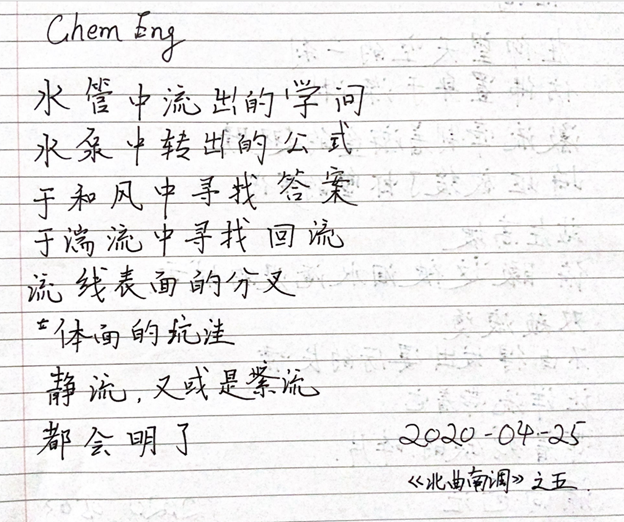 Chem Eng
水管中流出的学问
水泵中转出的公式
于和风中寻找答案
于湍流中寻找回流
流线表面的分叉
体面的坑洼
静流，又或是紊流
都会明了
2020-04-25
《北曲南调》之五